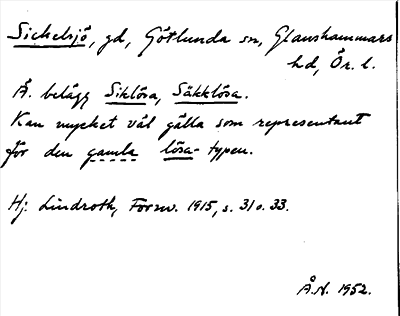 Sickelsjö, gd, Götlunda sn, Glanshammars
hd, Ör. l.
Ä. belägg Siklösa, Säkklösa.
Kan mycket väl gälla som representant
för den gamla lösa-typen.
Hj. Lindroth, Fornv. 1915, s. 31 o. 33.
Å.N. 1952.